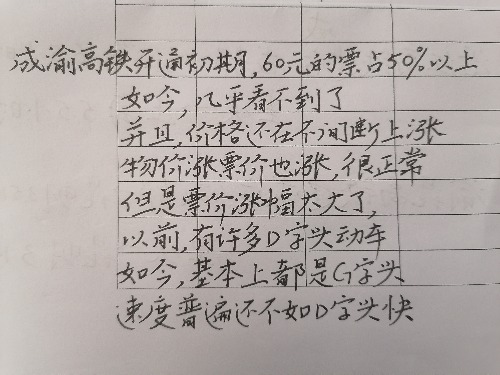 成渝高铁开通初期,60元的票占50%以上
如今,几乎看不到了
并且,价格还在不间断上涨
物价涨票价也涨,很正常
但是票价涨幅太大了,
以前,有许多D字头动车
如今,基本上都是G字头
速度普遍还不如D字头快